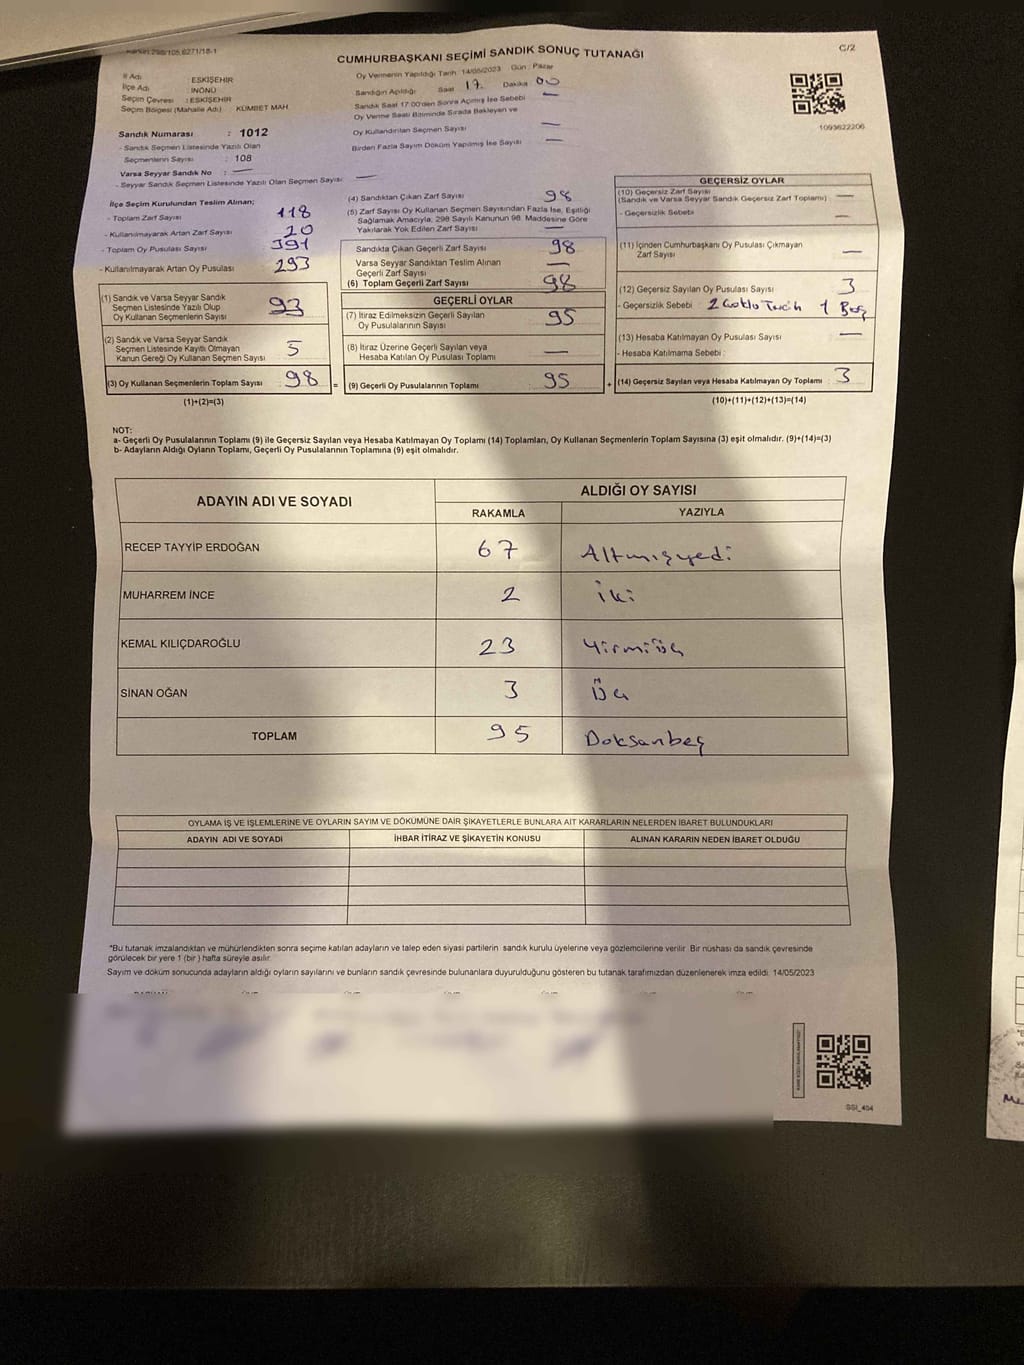 298/105.6271/18-1
CUMHURBAŞKANI SEÇİMİ SANDIK SONUÇ TUTANAĞI
C/2
İl Adı : ESKİŞEHİR
İlçe Adı : İNÖNÜ
Seçim Çevresi : ESKİŞEHİR
Seçim Bölgesi (Mahalle Adı) : KÜMBET MAH
Oy Vermenin Yapıldığı Tarih :14/05/2023 Gün : Pazar
Sandığın Açıldığı Saat 17. Dakika 00
Sandık Saat 17:00'den Sonra Açılmış İse Sebebi —
Oy Verme Saati Bitiminde Sırada Bekleyen ve
Oy Kullandırılan Seçmen Sayısı —
Birden Fazla Sayım Döküm Yapılmış İse Sayısı —
1093622206
Sandık Numarası : 1012
- Sandık Seçmen Listesinde Yazılı Olan
Seçmenlerin Sayısı : 108
Varsa Seyyar Sandık No : —
- Seyyar Sandık Seçmen Listesinde Yazılı Olan Seçmen Sayısı: —
İlçe Seçim Kurulundan Teslim Alınan;
- Toplam Zarf Sayısı 118
- Kullanılmayarak Artan Zarf Sayısı 20
- Toplam Oy Pusulası Sayısı 391
- Kullanılmayarak Artan Oy Pusulası 293
(1) Sandık ve Varsa Seyyar Sandık
Seçmen Listesinde Yazılı Olup
Oy Kullanan Seçmenlerin Sayısı 93
(2) Sandık ve Varsa Seyyar Sandık
Seçmen Listesinde Kayıtlı Olmayan
Kanun Gereği Oy Kullanan Seçmen Sayısı 5
(3) Oy Kullanan Seçmenlerin Toplam Sayısı 98 =
(1)+(2)=(3)
(4) Sandıktan Çıkan Zarf Sayısı 98
(5) Zarf Sayısı Oy Kullanan Seçmen Sayısından Fazla İse, Eşitliği
Sağlamak Amacıyla; 298 Sayılı Kanunun 98. Maddesine Göre
Yakılarak Yok Edilen Zarf Sayısı —
Sandıkta Çıkan Geçerli Zarf Sayısı 98
Varsa Seyyar Sandıktan Teslim Alınan
Geçerli Zarf Sayısı —
(6) Toplam Geçerli Zarf Sayısı 98
GEÇERLİ OYLAR
(7) İtiraz Edilmeksizin Geçerli Sayılan
Oy Pusulalarının Sayısı 95
(8) İtiraz Üzerine Geçerli Sayılan veya
Hesaba Katılan Oy Pusulası Toplamı —
(9) Geçerli Oy Pusulalarının Toplamı 95 +
GEÇERSİZ OYLAR
(10) Geçersiz Zarf Sayısı
(Sandık ve Varsa Seyyar Sandık Geçersiz Zarf Toplamı) —
- Geçersizlik Sebebi : —
(11) İçinden Cumhurbaşkanı Oy Pusulası Çıkmayan
Zarf Sayısı —
(12) Geçersiz Sayılan Oy Pusulası Sayısı 3
- Geçersizlik Sebebi 2 Çoklu Tercih 1 Boş
(13) Hesaba Katılmayan Oy Pusulası Sayısı —
- Hesaba Katılmama Sebebi :
(14) Geçersiz Sayılan veya Hesaba Katılmayan Oy Toplamı : 3
(10)+(11)+(12)+(13)=(14)
NOT:
a- Geçerli Oy Pusulalarının Toplamı (9) ile Geçersiz Sayılan veya Hesaba Katılmayan Oy Toplamı (14) Toplamları, Oy Kullanan Seçmenlerin Toplam Sayısına (3) eşit olmalıdır. (9)+(14)=(3)
b- Adayların Aldığı Oyların Toplamı, Geçerli Oy Pusulalarının Toplamına (9) eşit olmalıdır.
ADAYIN ADI VE SOYADI
ALDIĞI OY SAYISI
RAKAMLA YAZIYLA
RECEP TAYYİP ERDOĞAN 67 Altmışyedi
MUHARREM İNCE 2 İki
KEMAL KILIÇDAROĞLU 23 Yirmiüç
SİNAN OĞAN 3 Üç
TOPLAM 95 Doksanbeş
OYLAMA İŞ VE İŞLEMLERİNE VE OYLARIN SAYIM VE DÖKÜMÜNE DAİR ŞİKAYETLERLE BUNLARA AİT KARARLARIN NELERDEN İBARET BULUNDUKLARI
ADAYIN ADI VE SOYADI İHBAR İTİRAZ VE ŞİKAYETİN KONUSU ALINAN KARARIN NEDEN İBARET OLDUĞU
*Bu tutanak imzalandıktan ve mühürlendikten sonra seçime katılan adayların ve talep eden siyasi partilerin sandık kurulu üyelerine veya gözlemcilerine verilir. Bir nüshası da sandık çevresinde
görülecek bir yere 1 (bir ) hafta süreyle asılır.
Sayım ve döküm sonucunda adayların aldığı oyların sayılarını ve bunların sandık çevresinde bulunanlara duyurulduğunu gösteren bu tutanak tarafımızdan düzenlenerek imza edildi. 14/05/2023
SSI_404